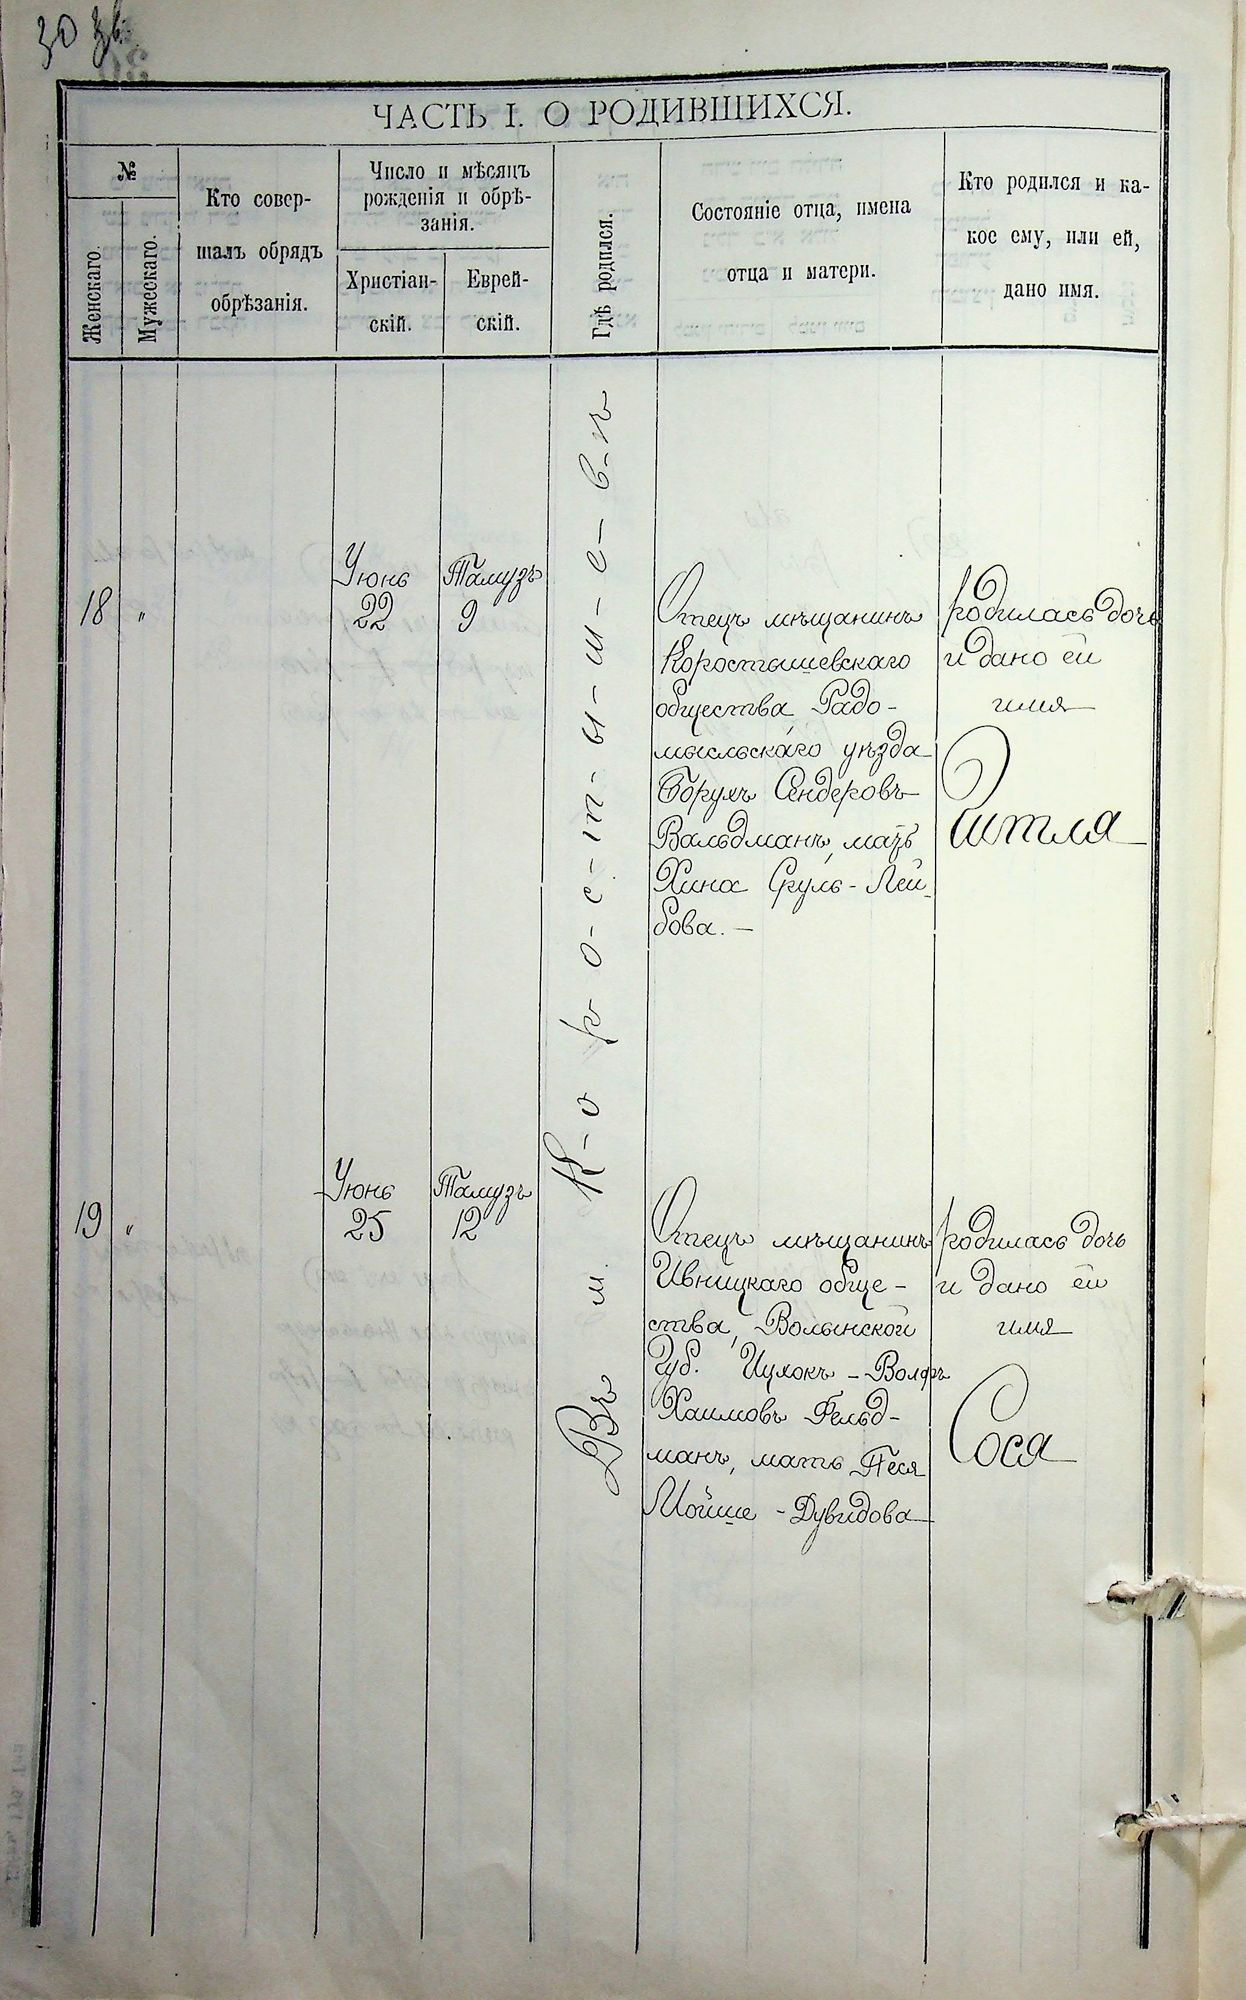 30 зв.
ЧАСТЬ I. О РОДИВШИХСЯ.
№
Женскаго.
Мужескаго.
Кто совер-
шалъ обрядъ
обрѣзанія.
Число и мѣсяцъ
рожденія и обрѣ-
занія.
Христіан-
скій.
Еврей-
скій.
Гдѣ родился.
Состояніе отца, имена
отца и матери.
Кто родился и ка-
кое ему, или ей,
дано имя.
Въ м. К-о р-о-с-т-ы-ш-е-в-ѣ
18 "
Іюнь
22
Тамузъ
9
Отецъ мѣщанинъ
Коростышевскаго
общества Радо-
мысльскаго уѣзда
Борухъ Сендеровъ
Вальдманъ, мать
Хина Сруль-Лей-
бова. —
родилась дочь
и дано ей
имя
Гитля
19 "
Іюнь
25
Тамузъ
12
Отецъ мѣщанинъ
Ивницкаго обще-
ства, Волынской
Губ. Ицхокъ-Волфъ
Хаимовъ Фельд-
манъ, мать Песя
Мойше-Дувидова
родилась дочь
и дано ей
имя
Сося